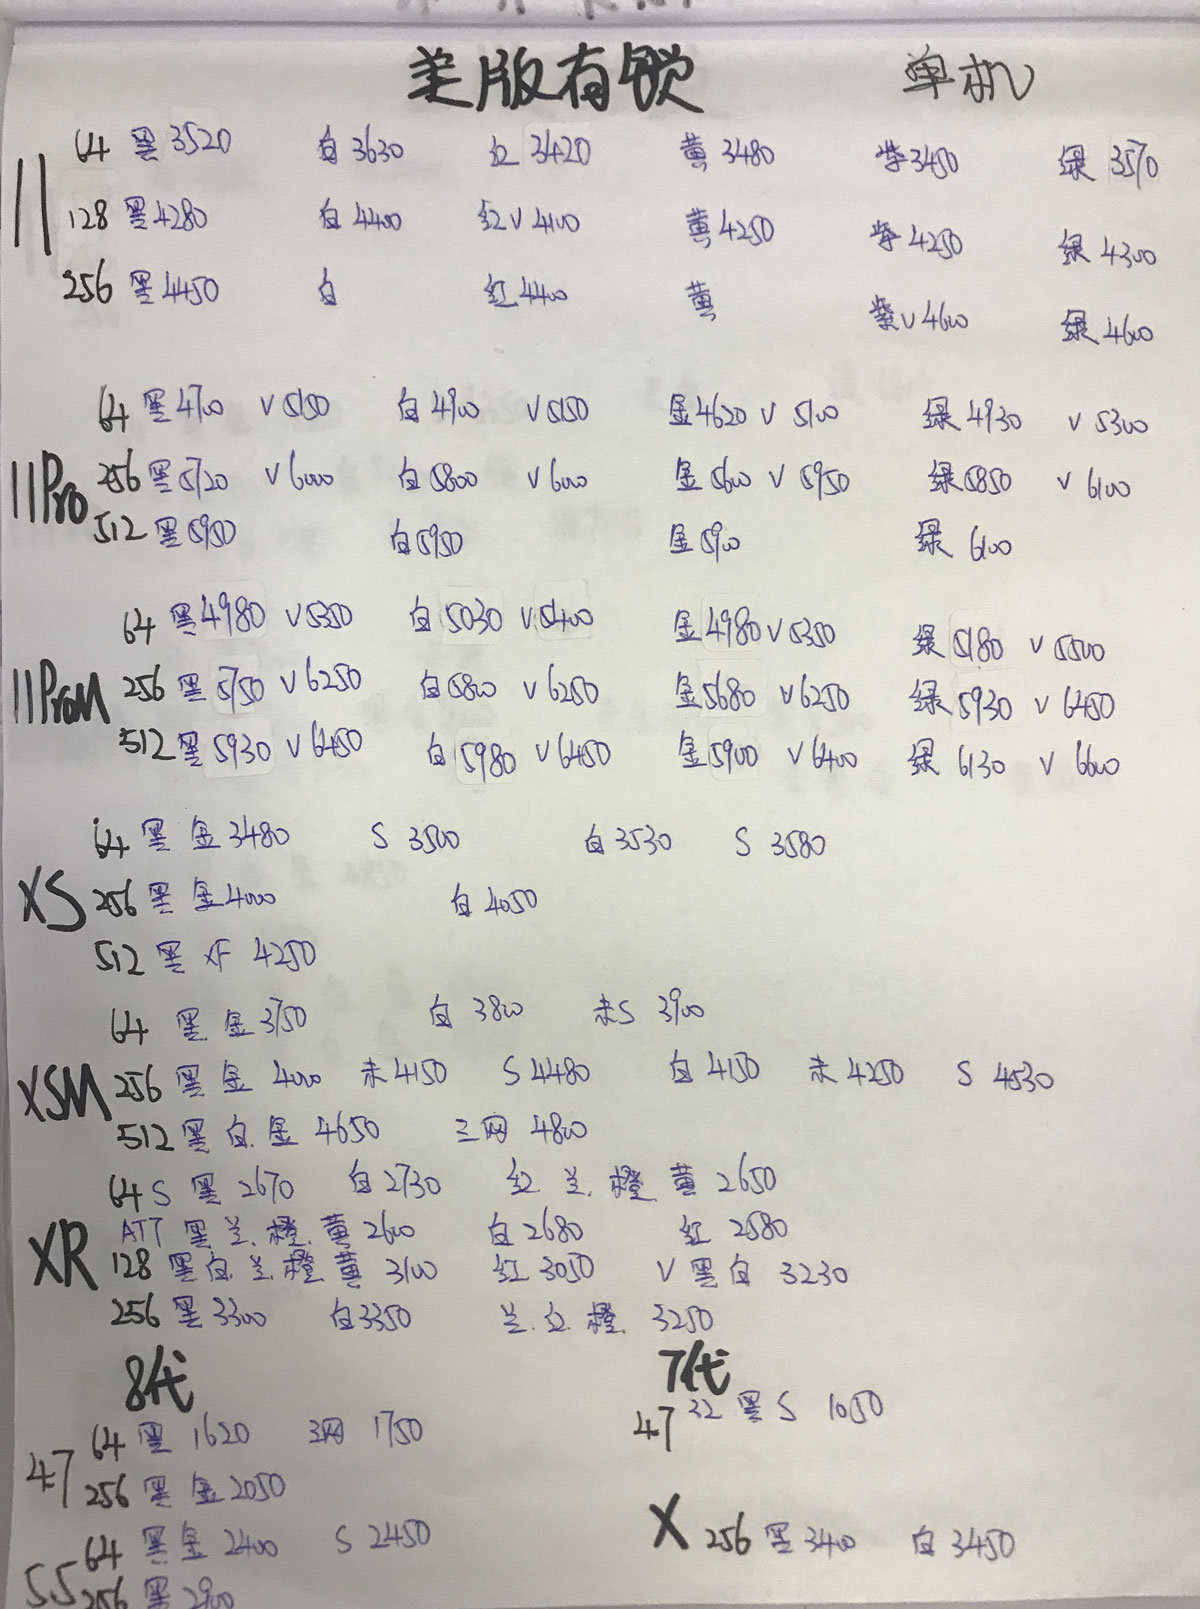 美版有锁 单机
11
64 黑3520 白3630 红3420 黄3480 紫3450 绿3570
128 黑4280 白4400 红V4100 黄4250 紫4250 绿4300
256 黑4450 白 红4400 黄 紫V4600 绿4600
11Pro
64 黑4700 V5150 白4900 V5150 金4620 V5100 绿4930 V5300
256 黑5720 V6000 白5800 V6000 金5600 V5950 绿5850 V6100
512 黑5950 白5950 金5900 绿6100
11ProM
64 黑4980 V5350 白5030 V5400 金4980 V5350 绿5180 V5500
256 黑5750 V6250 白5800 V6250 金5680 V6250 绿5930 V6450
512 黑5930 V6450 白5980 V6450 金5900 V6400 绿6130 V6600
XS
64 黑 金3480 S 3500 白3530 S 3580
256 黑 金4000 白4050
512 黑 XF 4250
XSM
64 黑 金3750 白 3800 未S 3900
256 黑 金 4000 未4150 S4480 白4150 未4250 S 4530
512 黑 白.金 4650 三网 4800
XR
64 S 黑 2670 白2730 红 兰.橙.黄 2650
ATT 黑 兰.橙.黄2600 白2680 红2580
128 黑白.兰.橙.黄 3100 红3050 V 黑白 3230
256 黑3300 白3350 兰.红.橙. 3250
8代
47
64 黑 1620 三网 1750
256 黑 金2050
55
64 黑金2400 S 2450
256 黑 2900
7代
47 32 黑 S 1050
X 256 黑3400 白3450